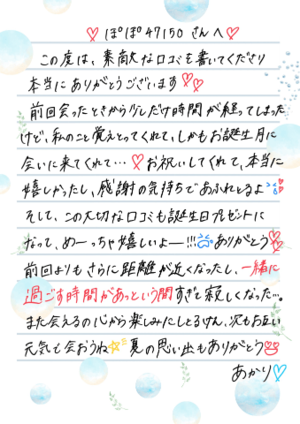 ♡ ぽぽ47150 さんへ ♡
この度は、素敵な口コミも書いてくださり
本当にありがとうございます♡♡
前回会ったときから少しだけ時間が経ってしまった
けど、私のこと覚えとってくれて、しかもお誕生月に
会いに来てくれて…♡お祝いしてくれて、本当に
嬉しかったし、感謝の気持ちであふれとるよ
そして、この大切な口コミも誕生日プレゼントに
なって、めーっちゃ嬉しいよー!!! ありがとう♡
前回よりもさらに距離が近くなったし、一緒に
過ごす時間があっという間すぎて寂しくなった…。
また会えるの心から楽しみにしとるけん、次もお互い
元気で会おうね 夏の思い出もありがとう
あかり♡